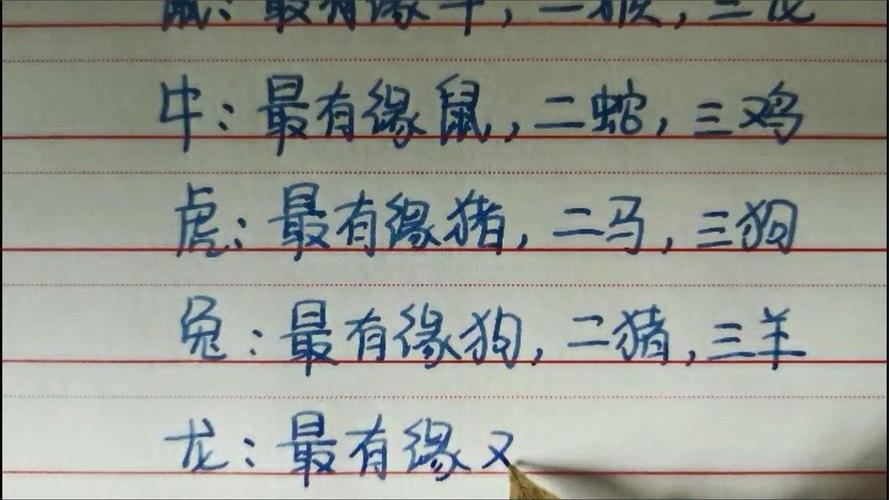 鼠：最有缘牛，二猴，三龙
牛：最有缘鼠，二蛇，三鸡
虎：最有缘猪，二马，三狗
兔：最有缘狗，二猪，三羊
龙：最有缘又